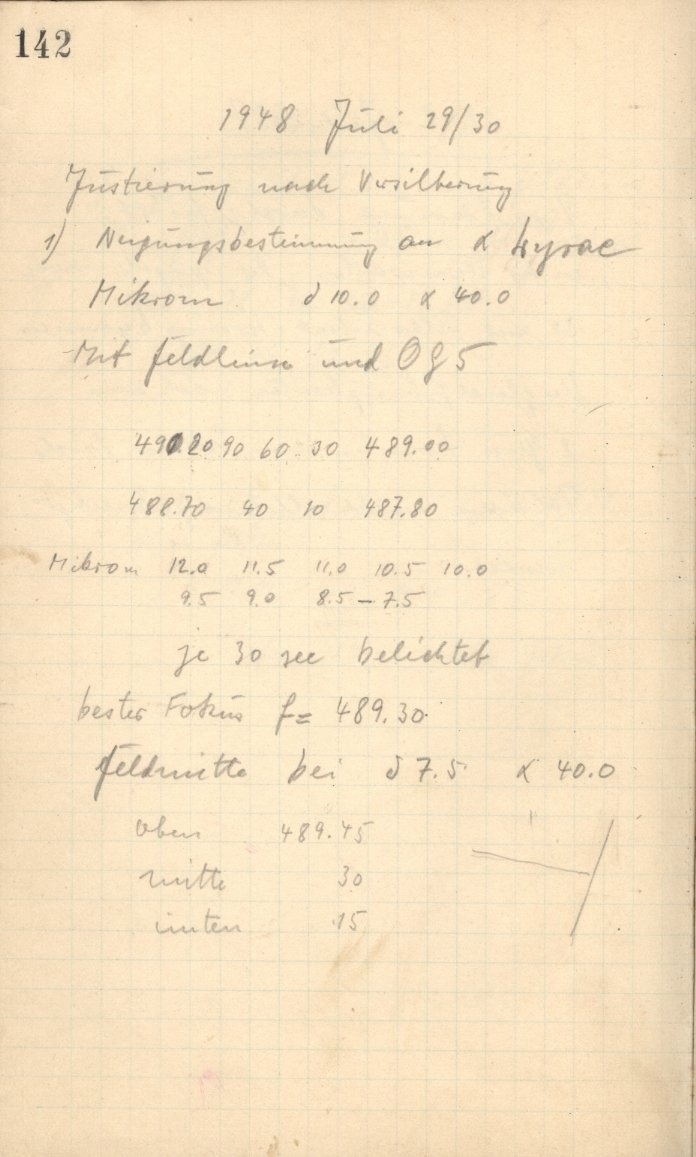 142
1948 Juli 29/30
Justierung nach Versilberung
1) Neigungsbestimmung an α Lyrae
Mikrom δ 10.0 α 40.0
Mit Feldlinse und OG5
490.20 90 60 30 489.00
488.70 40 10 487.80
Mikrom 12.0 11.5 11.0 10.5 10.0
9.5 9.0 8.5 – 7.5
je 30 sec belichtet
bester Fokus f = 489.30
Feldmitte bei δ 7.5 α 40.0
oben 489.45
mitte 30
unten 15